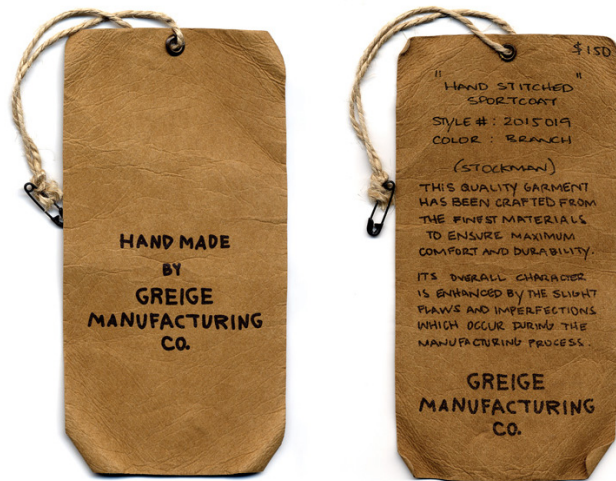 HAND MADE
BY
GREIGE
MANUFACTURING
CO.
$150
" "
HAND STITCHED
SPORTCOAT
STYLE #: 2015019
COLOR: BRANCH
(STOCKMAN)
THIS QUALITY GARMENT
HAS BEEN CRAFTED FROM
THE FINEST MATERIALS
TO ENSURE MAXIMUM
COMFORT AND DURABILITY.
ITS OVERALL CHARACTER
IS ENHANCED BY THE SLIGHT
FLAWS AND IMPERFECTIONS
WHICH OCCUR DURING THE
MANUFACTURING PROCESS.
GREIGE
MANUFACTURING
CO.